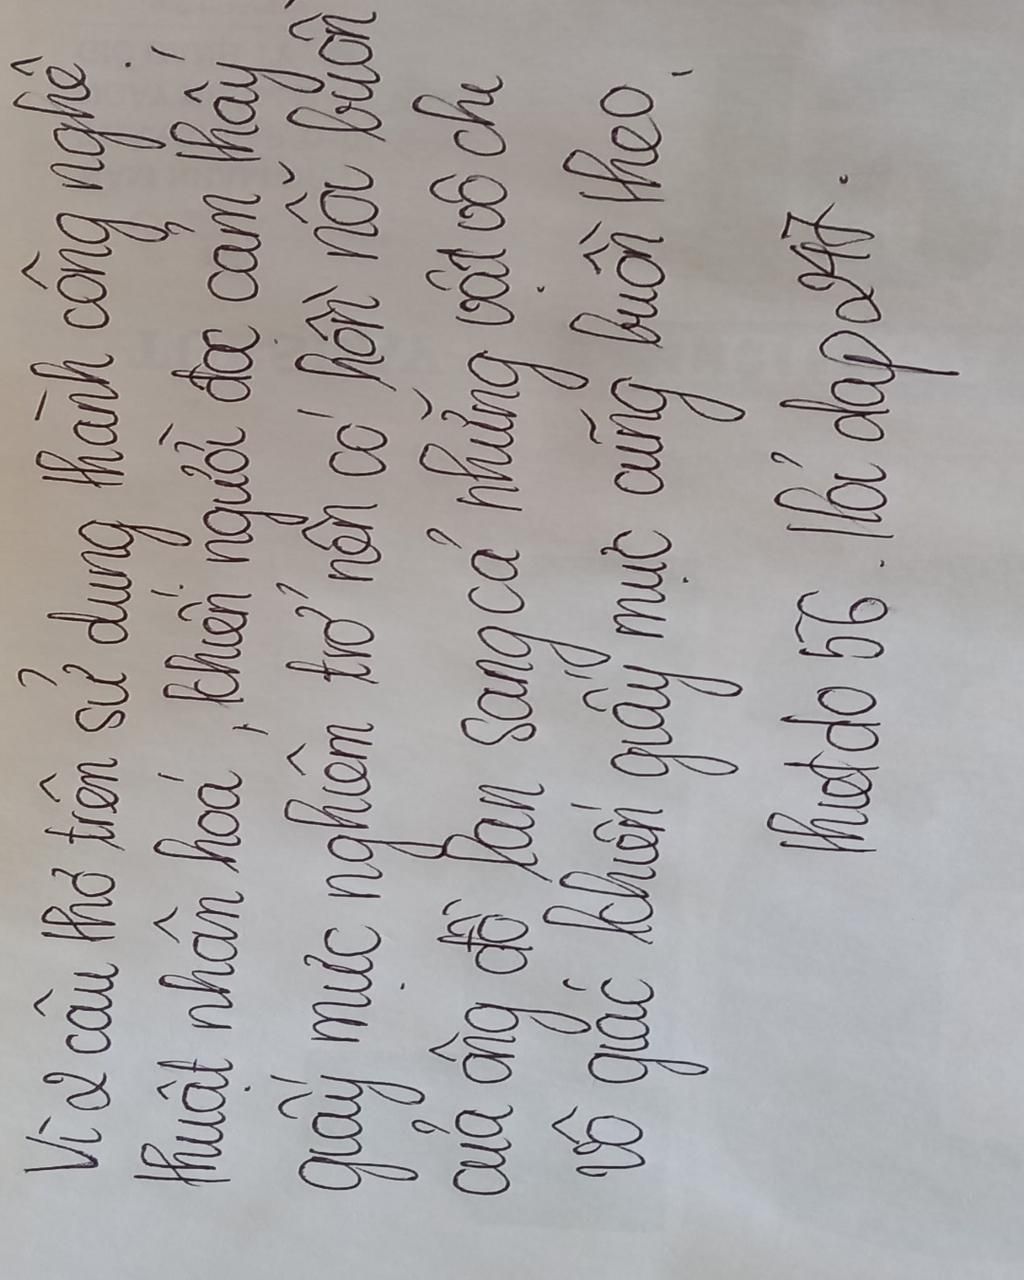 Vì 2 câu thơ trên sử dung thành công nghê
thuật nhân hoá, khiến người đọc cảm thấy
giấy mực nghiêm trở nên có hồn nỗi buồn
của ông đồ lan sang cả những vật vô chi
vô giác khiến giấy mực cũng buồn theo.
thuetdo 56. Hỏi dap 247.